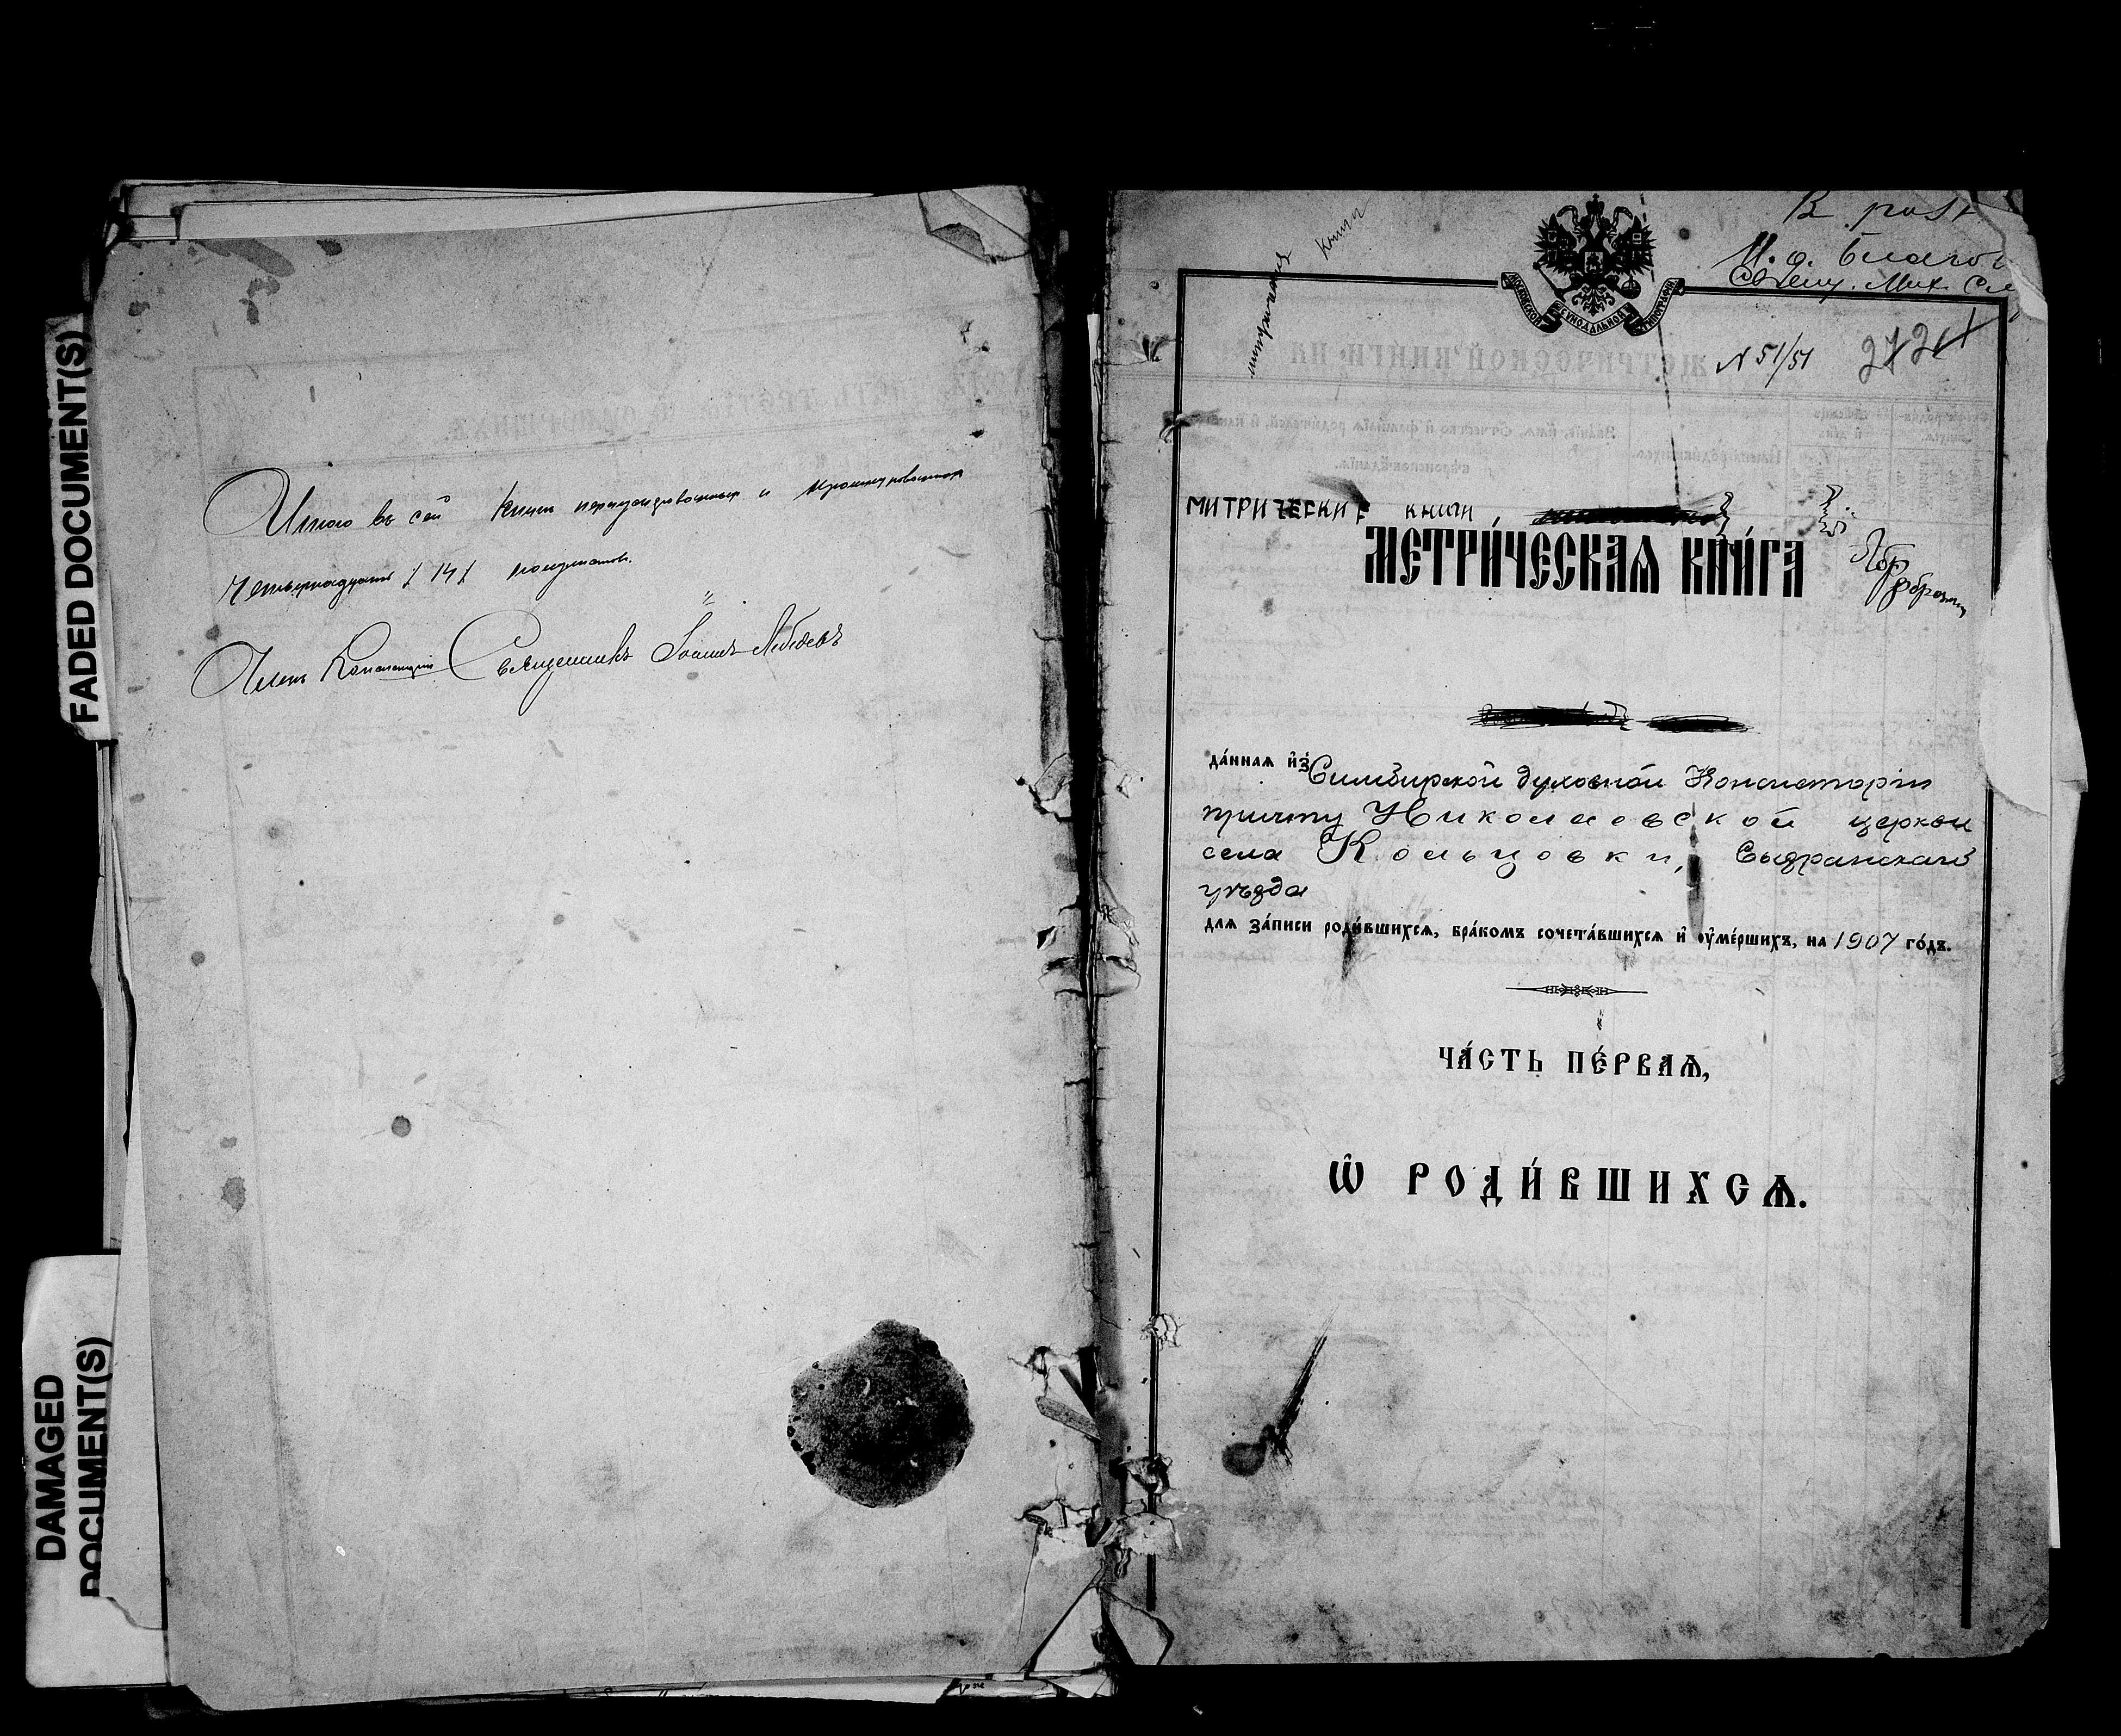 FADED DOCUMENT(S)
DAMAGED
DOCUMENT(S)
Итого въ сей книгѣ перенумерованныхъ и прошнурованныхъ
четырнадцать /14/ полулистовъ.
Членъ Консисторіи Священникъ Іоаннъ Лебедевъ
МОСКОВСКОЙ СѴНОДАЛЬНОЙ ТИПОГРАФІИ
книги
N 51/51
МИТРИЧЕСКИЕ книги
МЕТРИ́ЧЕСКАѦ КНИ́ГА
да́ннаѧ и҆зъ Симбирской духовной Консисторіи
причту Николаевской церкви
села Кольцовки, Сызранскаго
уѣзда
для за́писи роди́вшихсѧ, бра́комъ сочета́вшихсѧ и҆ ᲂу҆ме́ршихъ, на 1907 го́дъ.
ЧА́СТЬ ПЕ́РВАѦ,
Ѽ РОДИ́ВШИХСѦ.